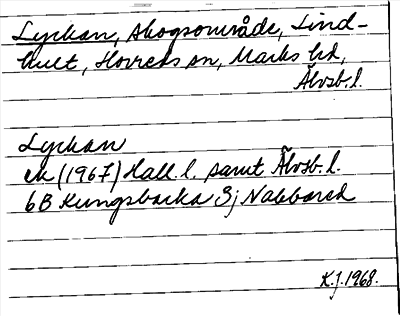 Lyckan, skogsområde, Lind-
hult, Horreds sn, Marks hd,
Älvsb. l.
Lyckan
ek (1967) Hall. l. samt Älvsb. l.
6B Kungsbacka 3j Nabbared
K.J. 1968.